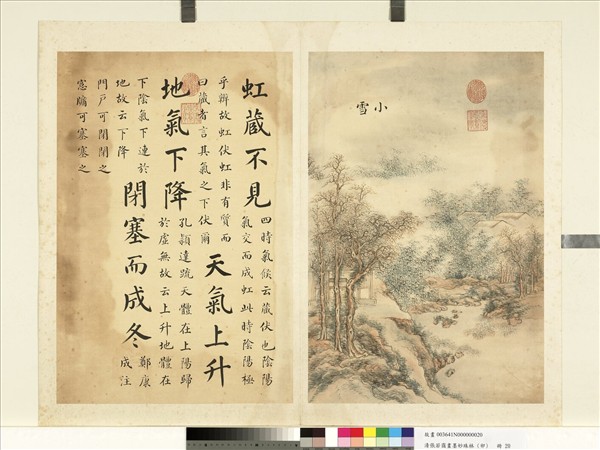 小雪
虹藏不見
四時氣候云藏伏也陰陽
氣交而成虹此時陰陽極
乎辨故虹伏虹非有質而
曰藏者言其氣之下伏爾
天氣上升
地氣下降
孔頴達疏天體在上陽歸
於虛無故云上升地體在
下陰氣下連於
地故云下降
閉塞而成冬
鄭康
成注
門戶可閉閉之
窓牖可塞塞之
故畫 003641N000000020